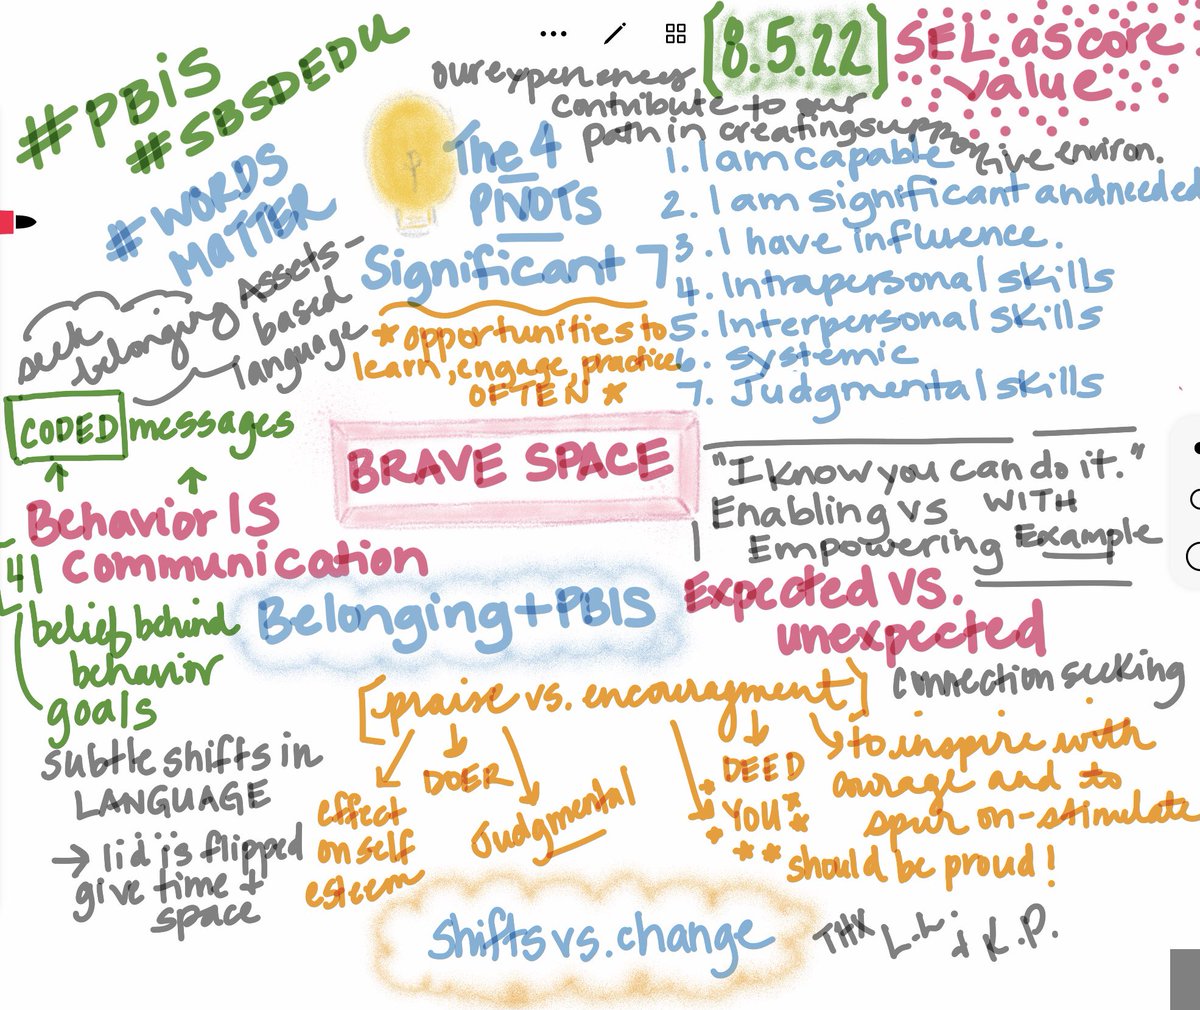 #PBiS
#SBSDEDU
#WORDS
MATTER
[8.5.22]
SEL as core
value
our experiences
contribute to our
path in creating supportive environ.
The 4
PIVOTS
Significant 7
1. I am capable
2. I am significant and needed
3. I have influence.
4. Intrapersonal skills
5. Interpersonal skills
6. Systemic
7. Judgmental skills
*opportunities to
learn, engage, practice
OFTEN *
seek
belonging
Assets-
based
language
CODED messages
Behavior IS
communication
BRAVE SPACE
"I know you can do it."
Enabling vs
Empowering
WITH
Example
belief behind
behavior
goals
Belonging + PBIS
Expected VS.
unexpected
connection seeking
[praise vs. encouragment]
effect
on self
esteem
DOER
Judgmental
DEED
*YOU*
should be proud!
to inspire with
courage and to
spur on-stimulate
subtle shifts in
LANGUAGE
→ lid is flipped
give time +
space
Shifts vs. change
THX L.L i K.P.